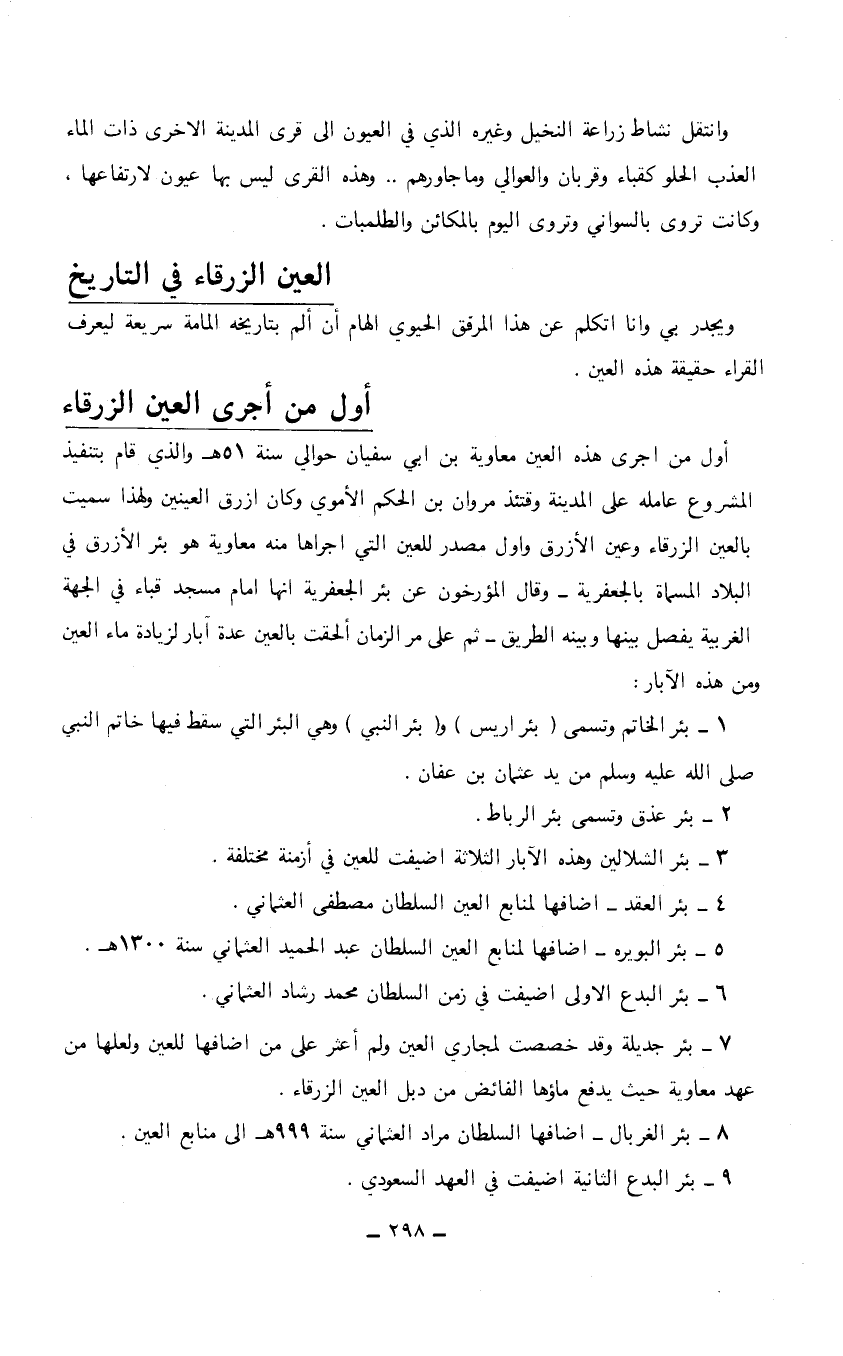 وانتقل نشاط زراعة النخيل وغيره الذي في العيون الى قرى المدينة الاخرى ذات الماء
العذب الحلو كقباء وقربان والعوالي وماجاورهم .. وهذه القرى ليس بها عيون لارتفاعها ،
وكانت تروى بالسواني وتروى اليوم بالمكائن والطلمبات .
العين الزرقاء في التاريخ
ويجدر بي وانا اتكلم عن هذا المرفق الحيوي الهام أن ألم بتاريخه المامة سريعة ليعرف
القراء حقيقة هذه العين .
أول من أجرى العين الزرقاء
أول من اجرى هذه العين معاوية بن ابي سفيان حوالي سنة ٥١هـ والذي قام بتنفيذ
المشروع عامله على المدينة وقتئذ مروان بن الحكم الأموي وكان ازرق العينين ولهذا سميت
بالعين الزرقاء وعين الأزرق واول مصدر للعين التي اجراها منه معاوية هو بئر الأزرق في
البلاد المسماة بالجعفرية – وقال المؤرخون عن بئر الجعفرية انها امام مسجد قباء في الجهة
الغربية يفصل بينها وبينه الطريق – ثم على مر الزمان ألحقت بالعين عدة آبار لزيادة ماء العين
ومن هذه الآبار :
١ – بئر الخاتم وتسمى ( بئر اريس ) و( بئر النبي ) وهي البئر التي سقط فيها خاتم النبي
صلى الله عليه وسلم من يد عثمان بن عفان .
٢ – بئر عذق وتسمى بئر الرباط .
٣ – بئر الشلالين وهذه الآبار الثلاثة اضيفت للعين في أزمنة مختلفة .
٤ – بئر العقد – اضافها لمنابع العين السلطان مصطفى العثماني .
٥ – بئر البويره – اضافها لمنابع العين السلطان عبد الحميد العثماني سنة ١٣٠٠هـ .
٦ – بئر البدع الاولى اضيفت في زمن السلطان محمد رشاد العثماني .
٧ – بئر جديلة وقد خصصت لمجاري العين ولم أعثر على من اضافها للعين ولعلها من
عهد معاوية حيث يدفع ماؤها الفائض من دبل العين الزرقاء .
٨ – بئر الغربال – اضافها السلطان مراد العثماني سنة ٩٩٩هـ الى منابع العين .
٩ – بئر البدع الثانية اضيفت في العهد السعودي .
– ٢٩٨ –